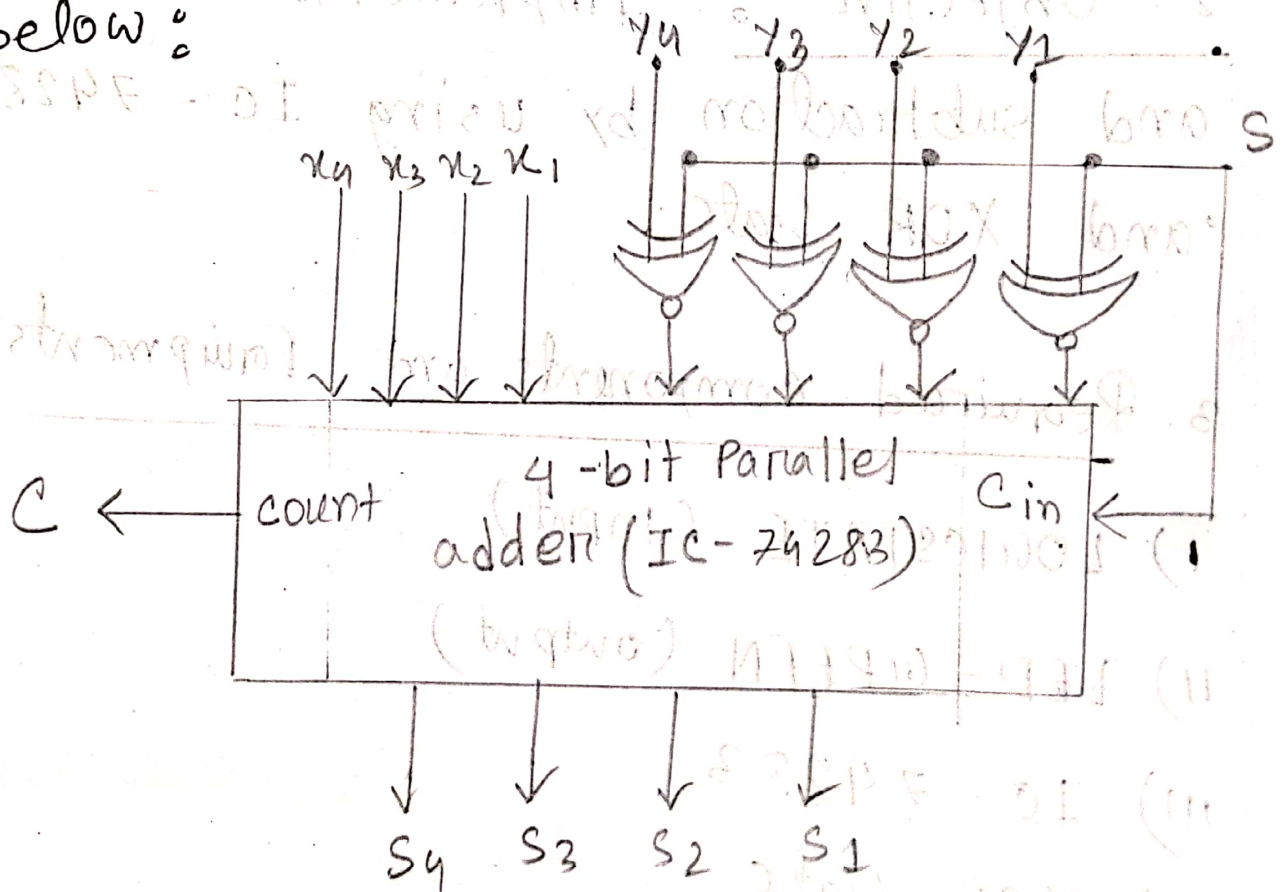 below :
y4 y3 y2 y1
S
x4 x3 x2 x1
4-bit Parallel
adder (IC-74283)
C
count
Cin
S4 S3 S2 S1